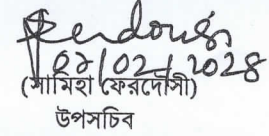 Ferdousi
02/02/2028
(শামিহা ফেরদৌসী)
উপসচিব